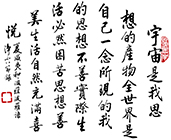 宇宙是我思
想的產物全世界是
自己一念所現的我
的思想不善實際生
活必然困苦思想善
美生活自然充滿喜
悅